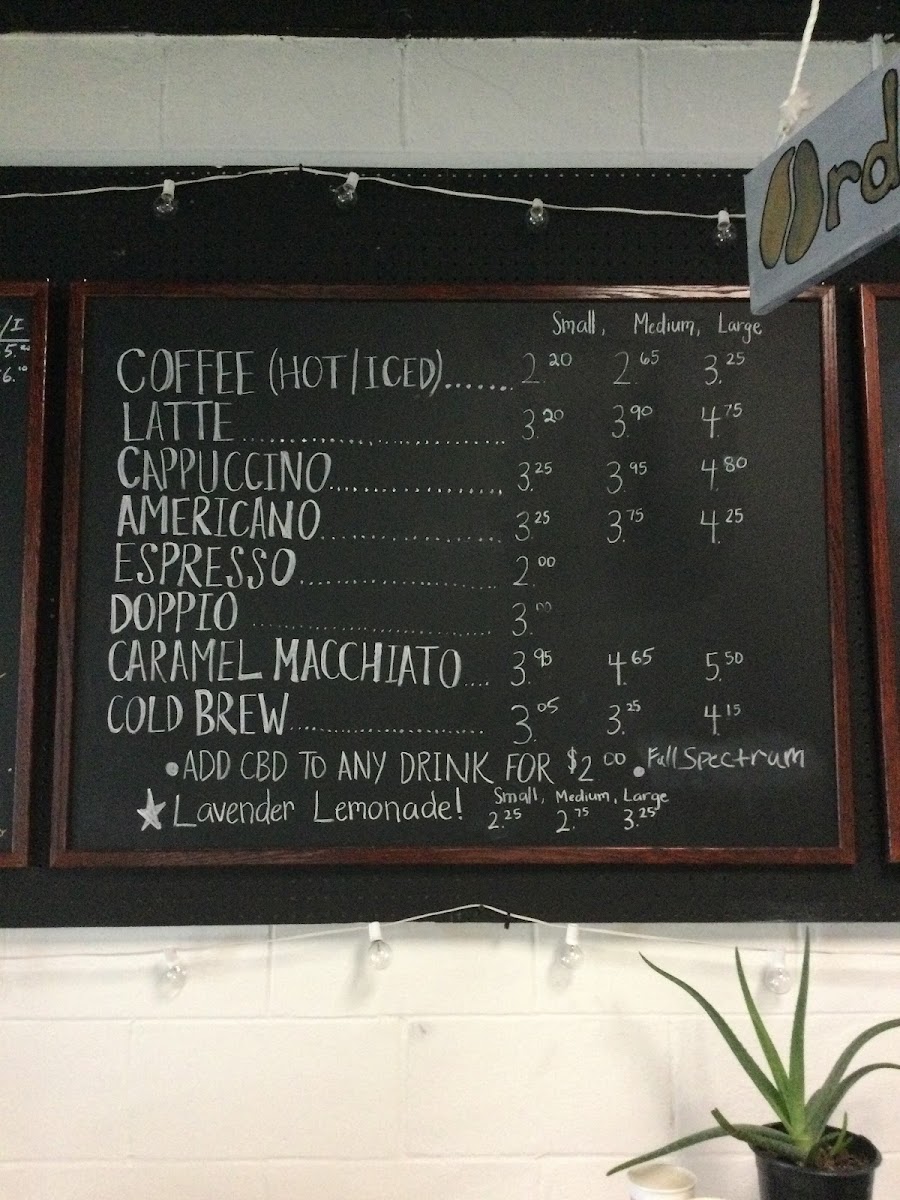 Ord
/I
5.
6.10
Small, Medium, Large
COFFEE (HOT/ICED)....... 2.20 2.65 3.25
LATTE.............................. 3.20 3.90 4.75
CAPPUCCINO.................... 3.25 3.95 4.80
AMERICANO..................... 3.25 3.75 4.25
ESPRESSO........................ 2.00
DOPPIO ........................... 3.00
CARAMEL MACCHIATO.... 3.95 4.65 5.50
COLD BREW...................... 3.05 3.25 4.15
•ADD CBD TO ANY DRINK FOR $2.00 •Full Spectrum
Small, Medium, Large
★Lavender Lemonade! 2.25 2.75 3.25